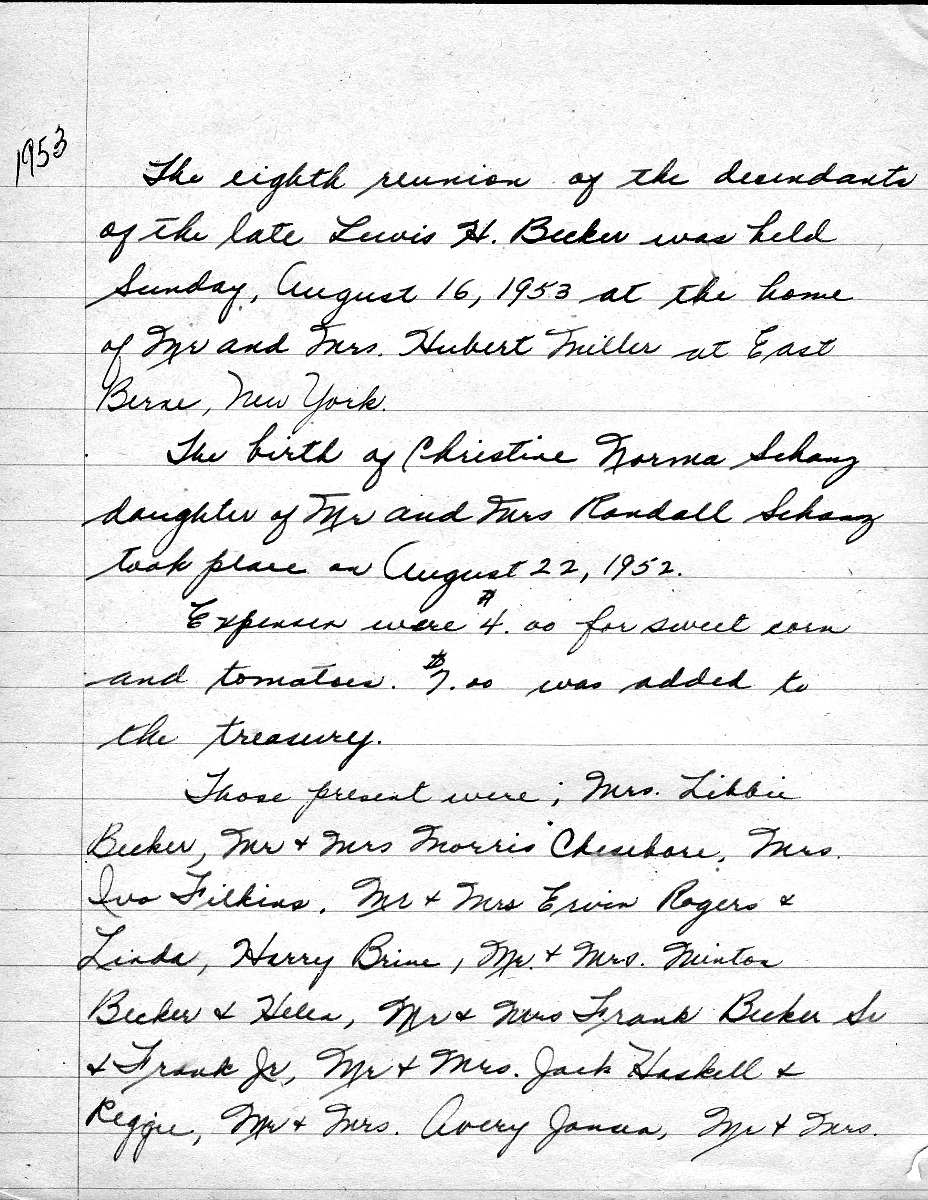 1953
The eighth reunion of the decendants
of the late Lewis H. Becker was held
Sunday, August 16, 1953 at the home
of Mr and Mrs. Hubert Miller at East
Berne, New York.
The birth of Christine Norma Schanz
daughter of Mr and Mrs Randall Schanz
took place on August 22, 1952.
Expenses were $4.00 for sweet corn
and tomatoes. $7.00 was added to
the treasury.
Those present were; Mrs. Libbie
Becker, Mr & Mrs Morris Chesebore, Mrs.
Iva Filkins, Mr & Mrs Ervin Rogers &
Linda, Harry Brine, Mr. & Mrs. Minton
Becker & Helen, Mr & Mrs Frank Becker Sr
& Frank Jr, Mr & Mrs. Jack Haskell &
Reggie, Mr & Mrs. Avery Jansen, Mr & Mrs.